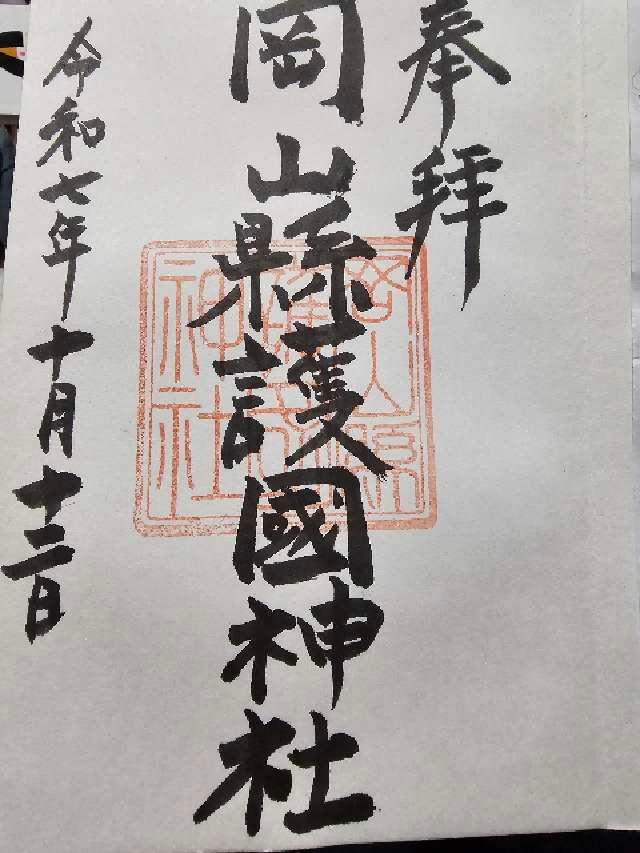 奉拝
岡山縣護國神社
岡山縣護國神社
令和七年十月十二日